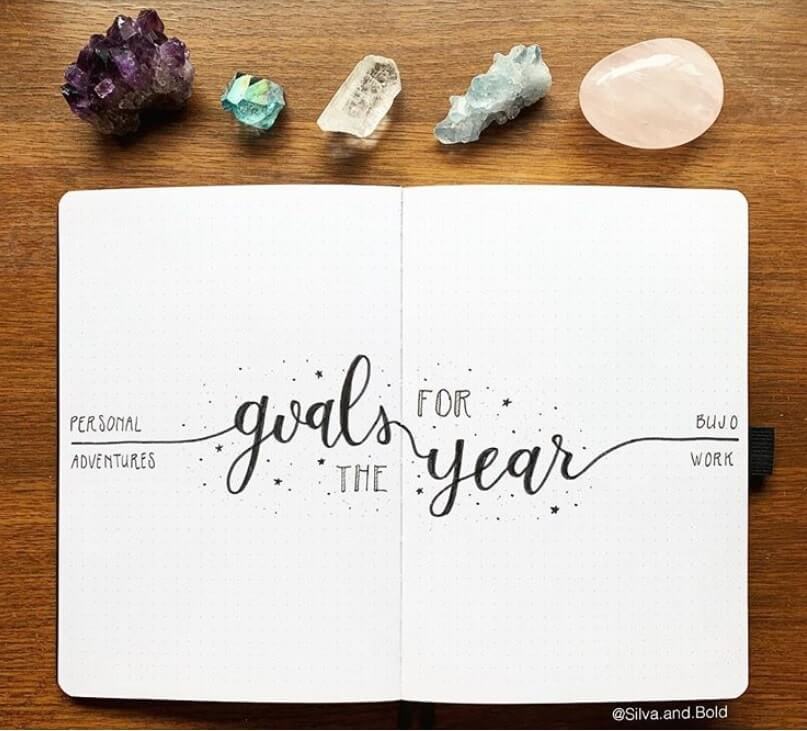 PERSONAL
ADVENTURES
goals FOR
THE year
BUJO
WORK
@Silva.and.Bold